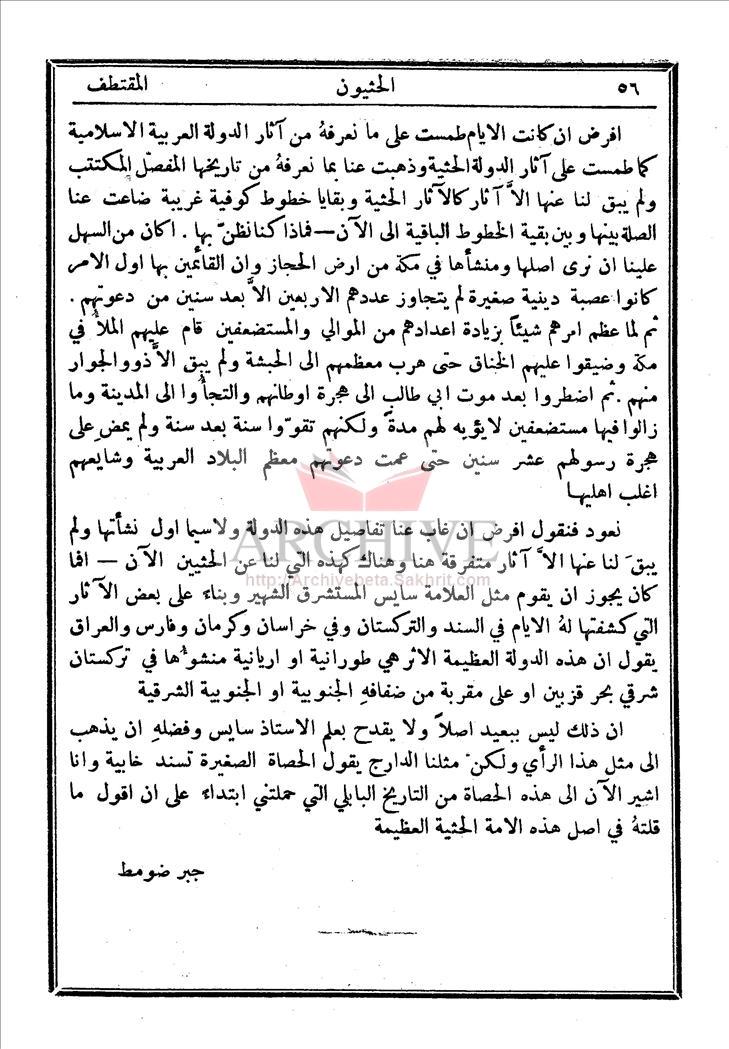 ٥٦ الحثيون المقتطف
افرض ان كانت الايام طمست على ما نعرفهُ من آثار الدولة العربية الاسلامية
كما طمست على آثار الدولة الحثية وذهبت عنا بما نعرفهُ من تاريخها المفصّل المكتتب
ولم يبق لنا عنها الاَّ آثار كالآثار الحثية وبقايا خطوط كوفية غريبة ضاعت عنا
الصلة بينها وبين بقية الخطوط الباقية الى الآن — فماذا كنا نظنّ بها . اكان من السهل
علينا ان نرى اصلها ومنشأها في مكة من ارض الحجاز وان القائمين بها اول الامر
كانوا عصبة دينية صغيرة لم يتجاوز عددهم الاربعين الاَّ بعد سنين من دعوتهم .
ثم لما عظم امرهم شيئاً بزيادة اعدادهم من الموالي والمستضعفين قام عليهم الملأُ في
مكة وضيقوا عليهم الخناق حتى هرب معظمهم الى الحبشة ولم يبق الاَّ ذوو الجوار
منهم . ثم اضطروا بعد موت ابي طالب الى هجرة اوطانهم والتجأُوا الى المدينة وما
زالوا فيها مستضعفين لا يؤبه لهم مدةً ولكنهم تقوّوا سنة بعد سنة ولم يمضِ على
هجرة رسولهم عشر سنين حتى عمت دعوتهم معظم البلاد العربية وشايعهم
اغلب اهليها
نعود فنقول افرض ان غاب عنا تفاصيل هذه الدولة ولاسيما اول نشأتها ولم
يبقَ لنا عنها الاَّ آثار متفرقة هنا وهناك كهذه التي لنا عن الحثيين الآن — افما
كان يجوز ان يقوم مثل العلامة سايس المستشرق الشهير وبناء على بعض الآثار
التي كشفتها لهُ الايام في السند والتركستان وفي خراسان وكرمان وفارس والعراق
يقول ان هذه الدولة العظيمة الاثر هي طورانية او اريانية منشوءُها في تركستان
شرقي بحر قزبين او على مقربة من ضفافهِ الجنوبية او الجنوبية الشرقية
ان ذلك ليس ببعيد اصلاً ولا يقدح بعلم الاستاذ سايس وفضلهِ ان يذهب
الى مثل هذا الرأي ولكنْ مثلنا الدارج يقول الحصاة الصغيرة تسند خابية وانا
اشير الآن الى هذه الحصاة من التاريخ البابلي التي حملتني ابتداء على ان اقول ما
قلتهُ في اصل هذه الامة الحثية العظيمة
جبر ضومط
ARCHIVE
http://Archivebeta.Sakhrit.com